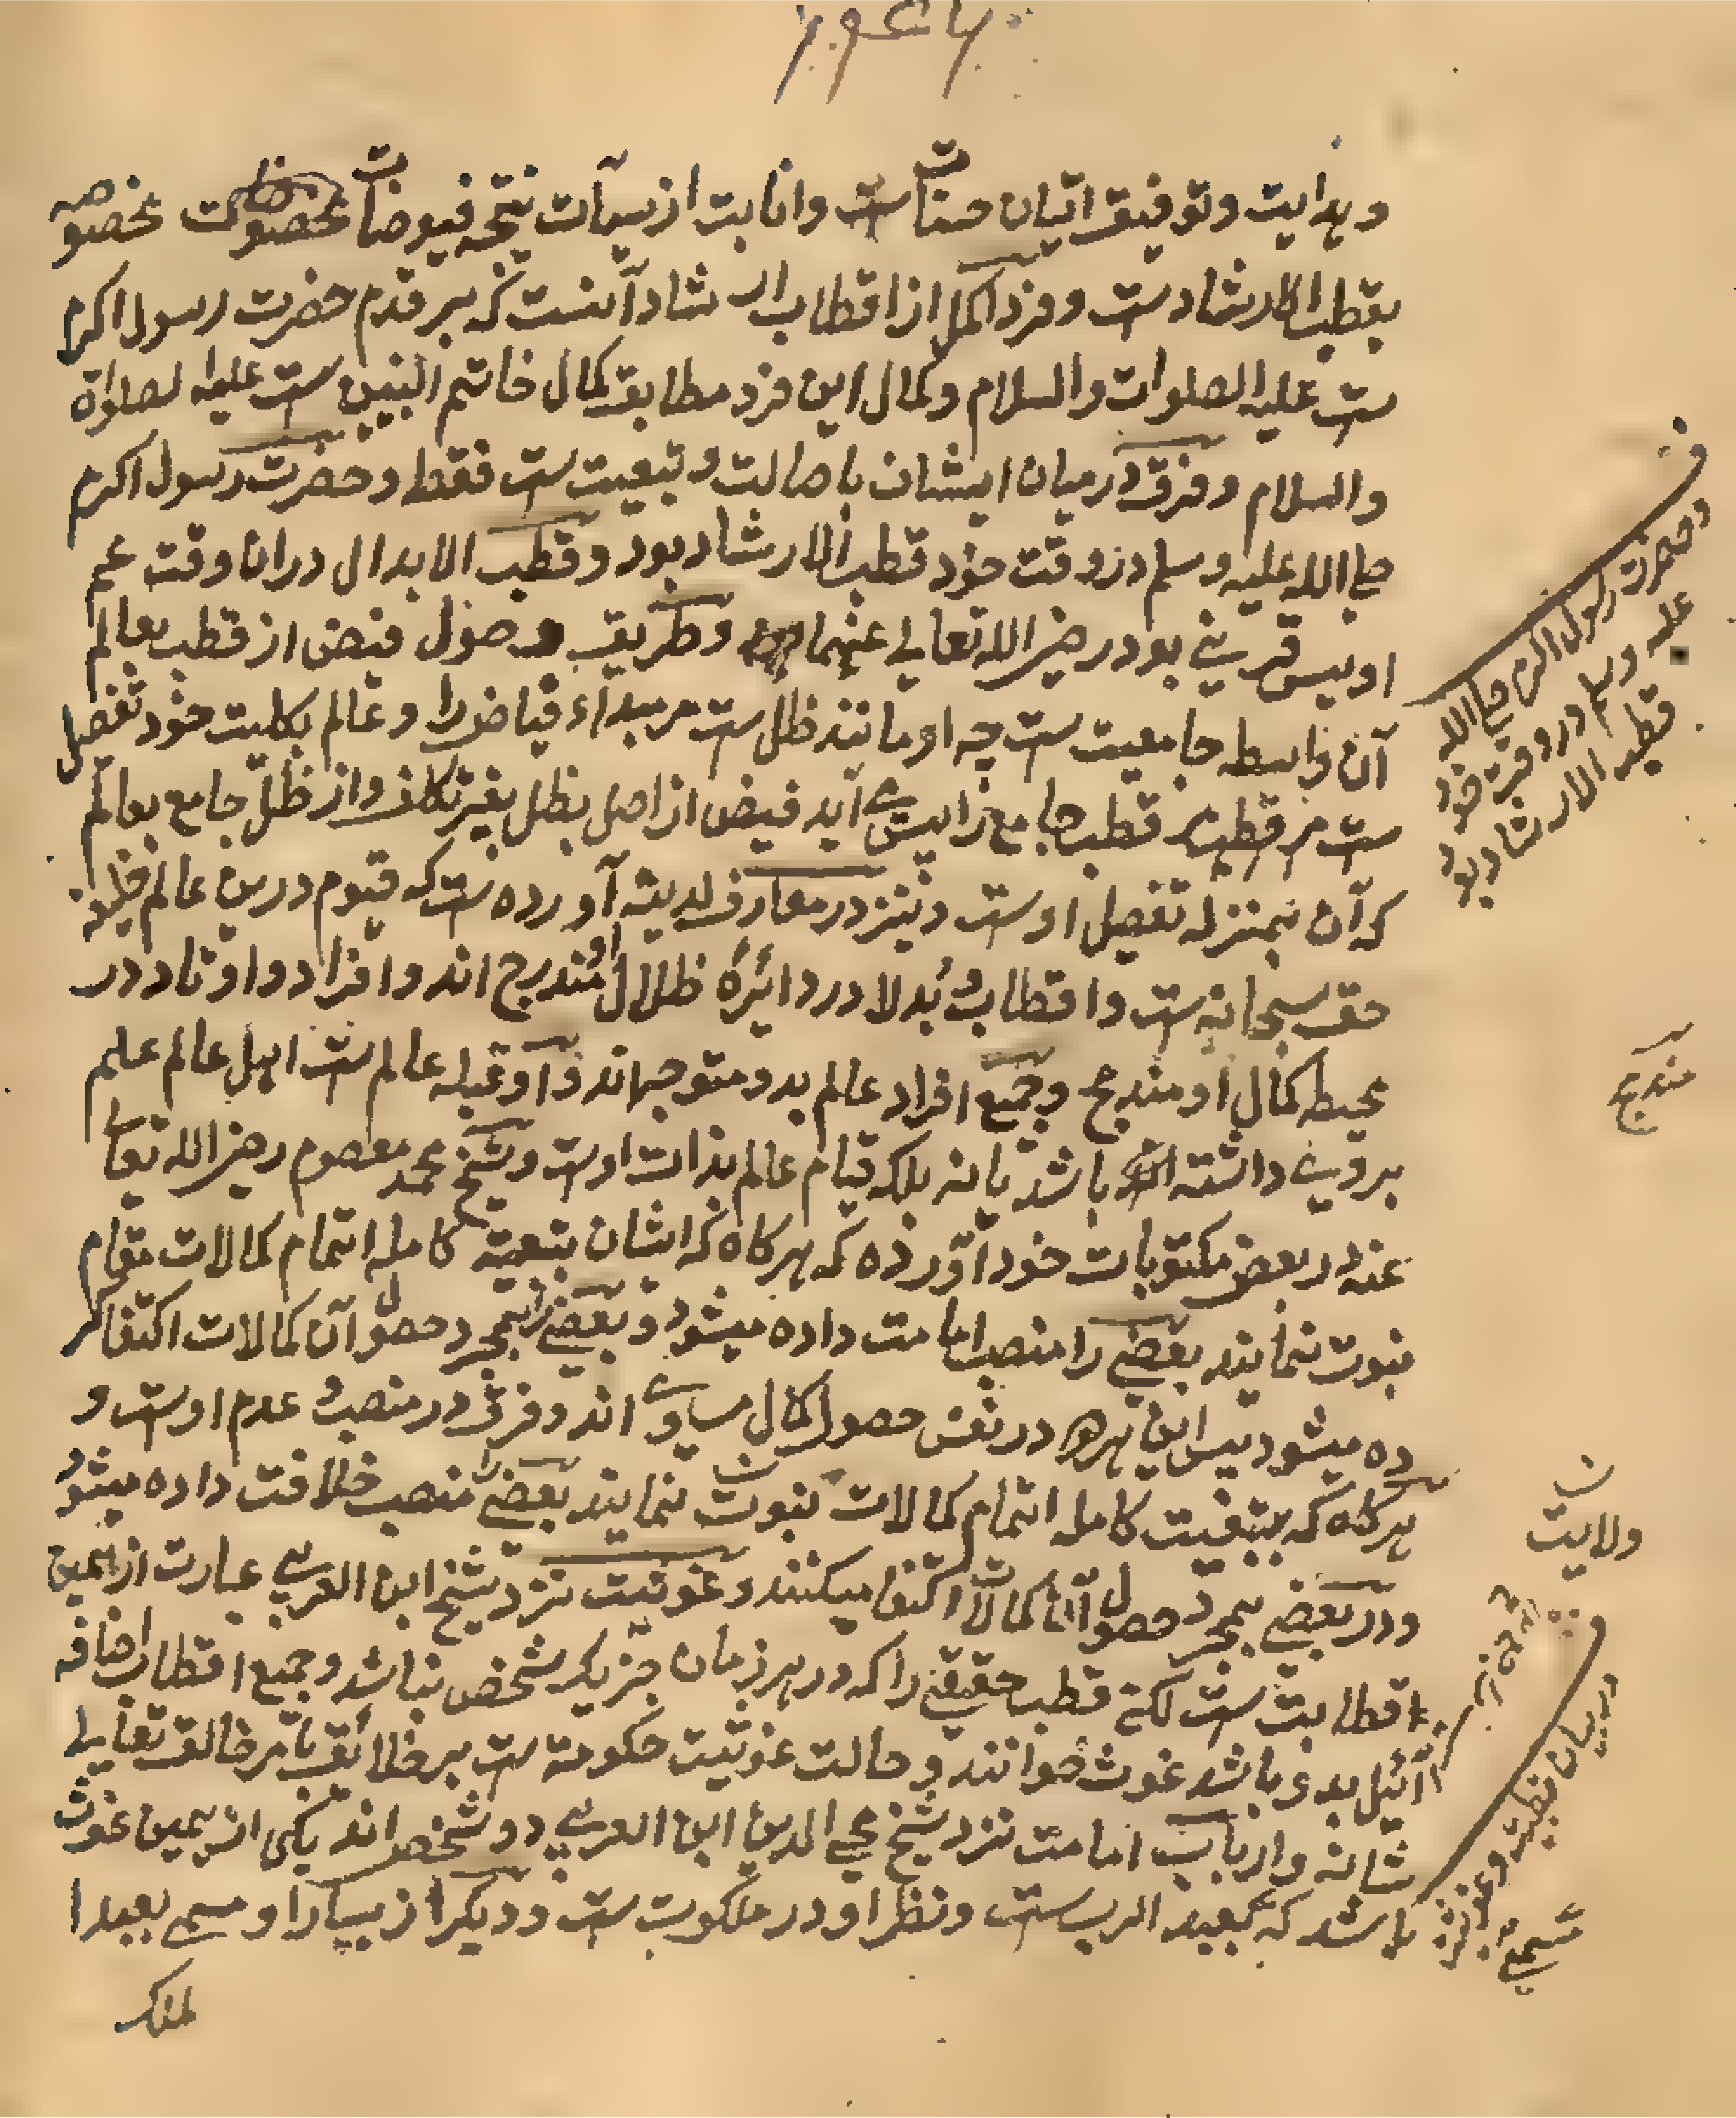 و هدایت و توفیق اتیان حسنات ست و انابت از سیآت نتیجه فیوضات مخصوصه
بقطب الارشادست و فرد اکمل از اقطاب ارشاد آنست که بر قدم حضرت رسول اکرم
ست علیه الصلوات والسلام و کمال این فرد مطابق کمال خاتم النبیین ست علیه الصلوٰة
والسلام و فرق درمیان ایشان باصالت و تبعیت ست فقط و حضرت رسول اکرم
صلی الله علیه وسلم در وقت خود قطب الارشاد بود و قطب الابدال دران وقت عم
اویس قرنی بود رضی الله تعالی عنهما و طریق وصول فیض از قطب بعالم
آن واسطه جامعیت ست چه او مانند ظل ست مر مبداء فیاض را و عالم بکلیت خود تفصیل
ست مر قطب جامع را پس می آید فیض از اصل بظل بغیر تکلف و از ظل جامع بعالم
که آن بمنزله تفصیل اوست و نیز در معارف لدنیه آورده ست که قیوم درین عالم خلیفهٔ
حق سبحانه ست و اقطاب و بدلا در دائرهٔ ظلال او مندرج اند و افراد و اوتاد در
محیط کمال او مندرج و جمیع افراد عالم بدو متوجه اند و او قبله عالم ست اهل عالم علم
بروی داشته باشد یا نه بلکه قیام عالم بذات اوست و شیخ محمد معصوم رضی الله تعالی
عنه در بعض مکتوبات خود آورده که هرکاه که ایشان بتبعیة کامله اتمام کمالات مقام
نبوت نمایند بعضی را منصب امامت داده میشود و بعضی را بمجرد حصول آن کمالات اکتفا کر
ده میشود پس این هر دو در نفس حصول کمال مساوی اند و فرق در منصب و عدم اوست و
هرکاه که بتبعیت کامله اتمام کمالات نبوت نمایند بعضی را منصب خلافت داده میشود
و در بعضی بمجرد حصول آن کمالات اکتفا میکنند و غوثیت نزد شیخ ابن العربی عبارت از همین
اقطابیت ست لکن قطب حقیقی را که در هر زمان جز یک شخص نباشد و جمیع اقطاب اضافه
آئیل بدو باشد غوث خوانند و حالت غوثیت حکومة ست بر خلائق بامر خالق تعالی
شانه و ارباب امامت نزد شیخ محی الدین ابن العربی دو شخص اند یکی از یمین غوث
باشد که بعبد الرب ست و نظر او در ملکوت ست و دیکر از یسار او مسمی بعبد ا
لملک
ف
و حضرت رسول اکرم صلی الله
علیه وسلم در وقت خود
قطب الارشاد بود
مندرج
ن
ولایت
دربیان قطبیت و غوثیت
مسمی